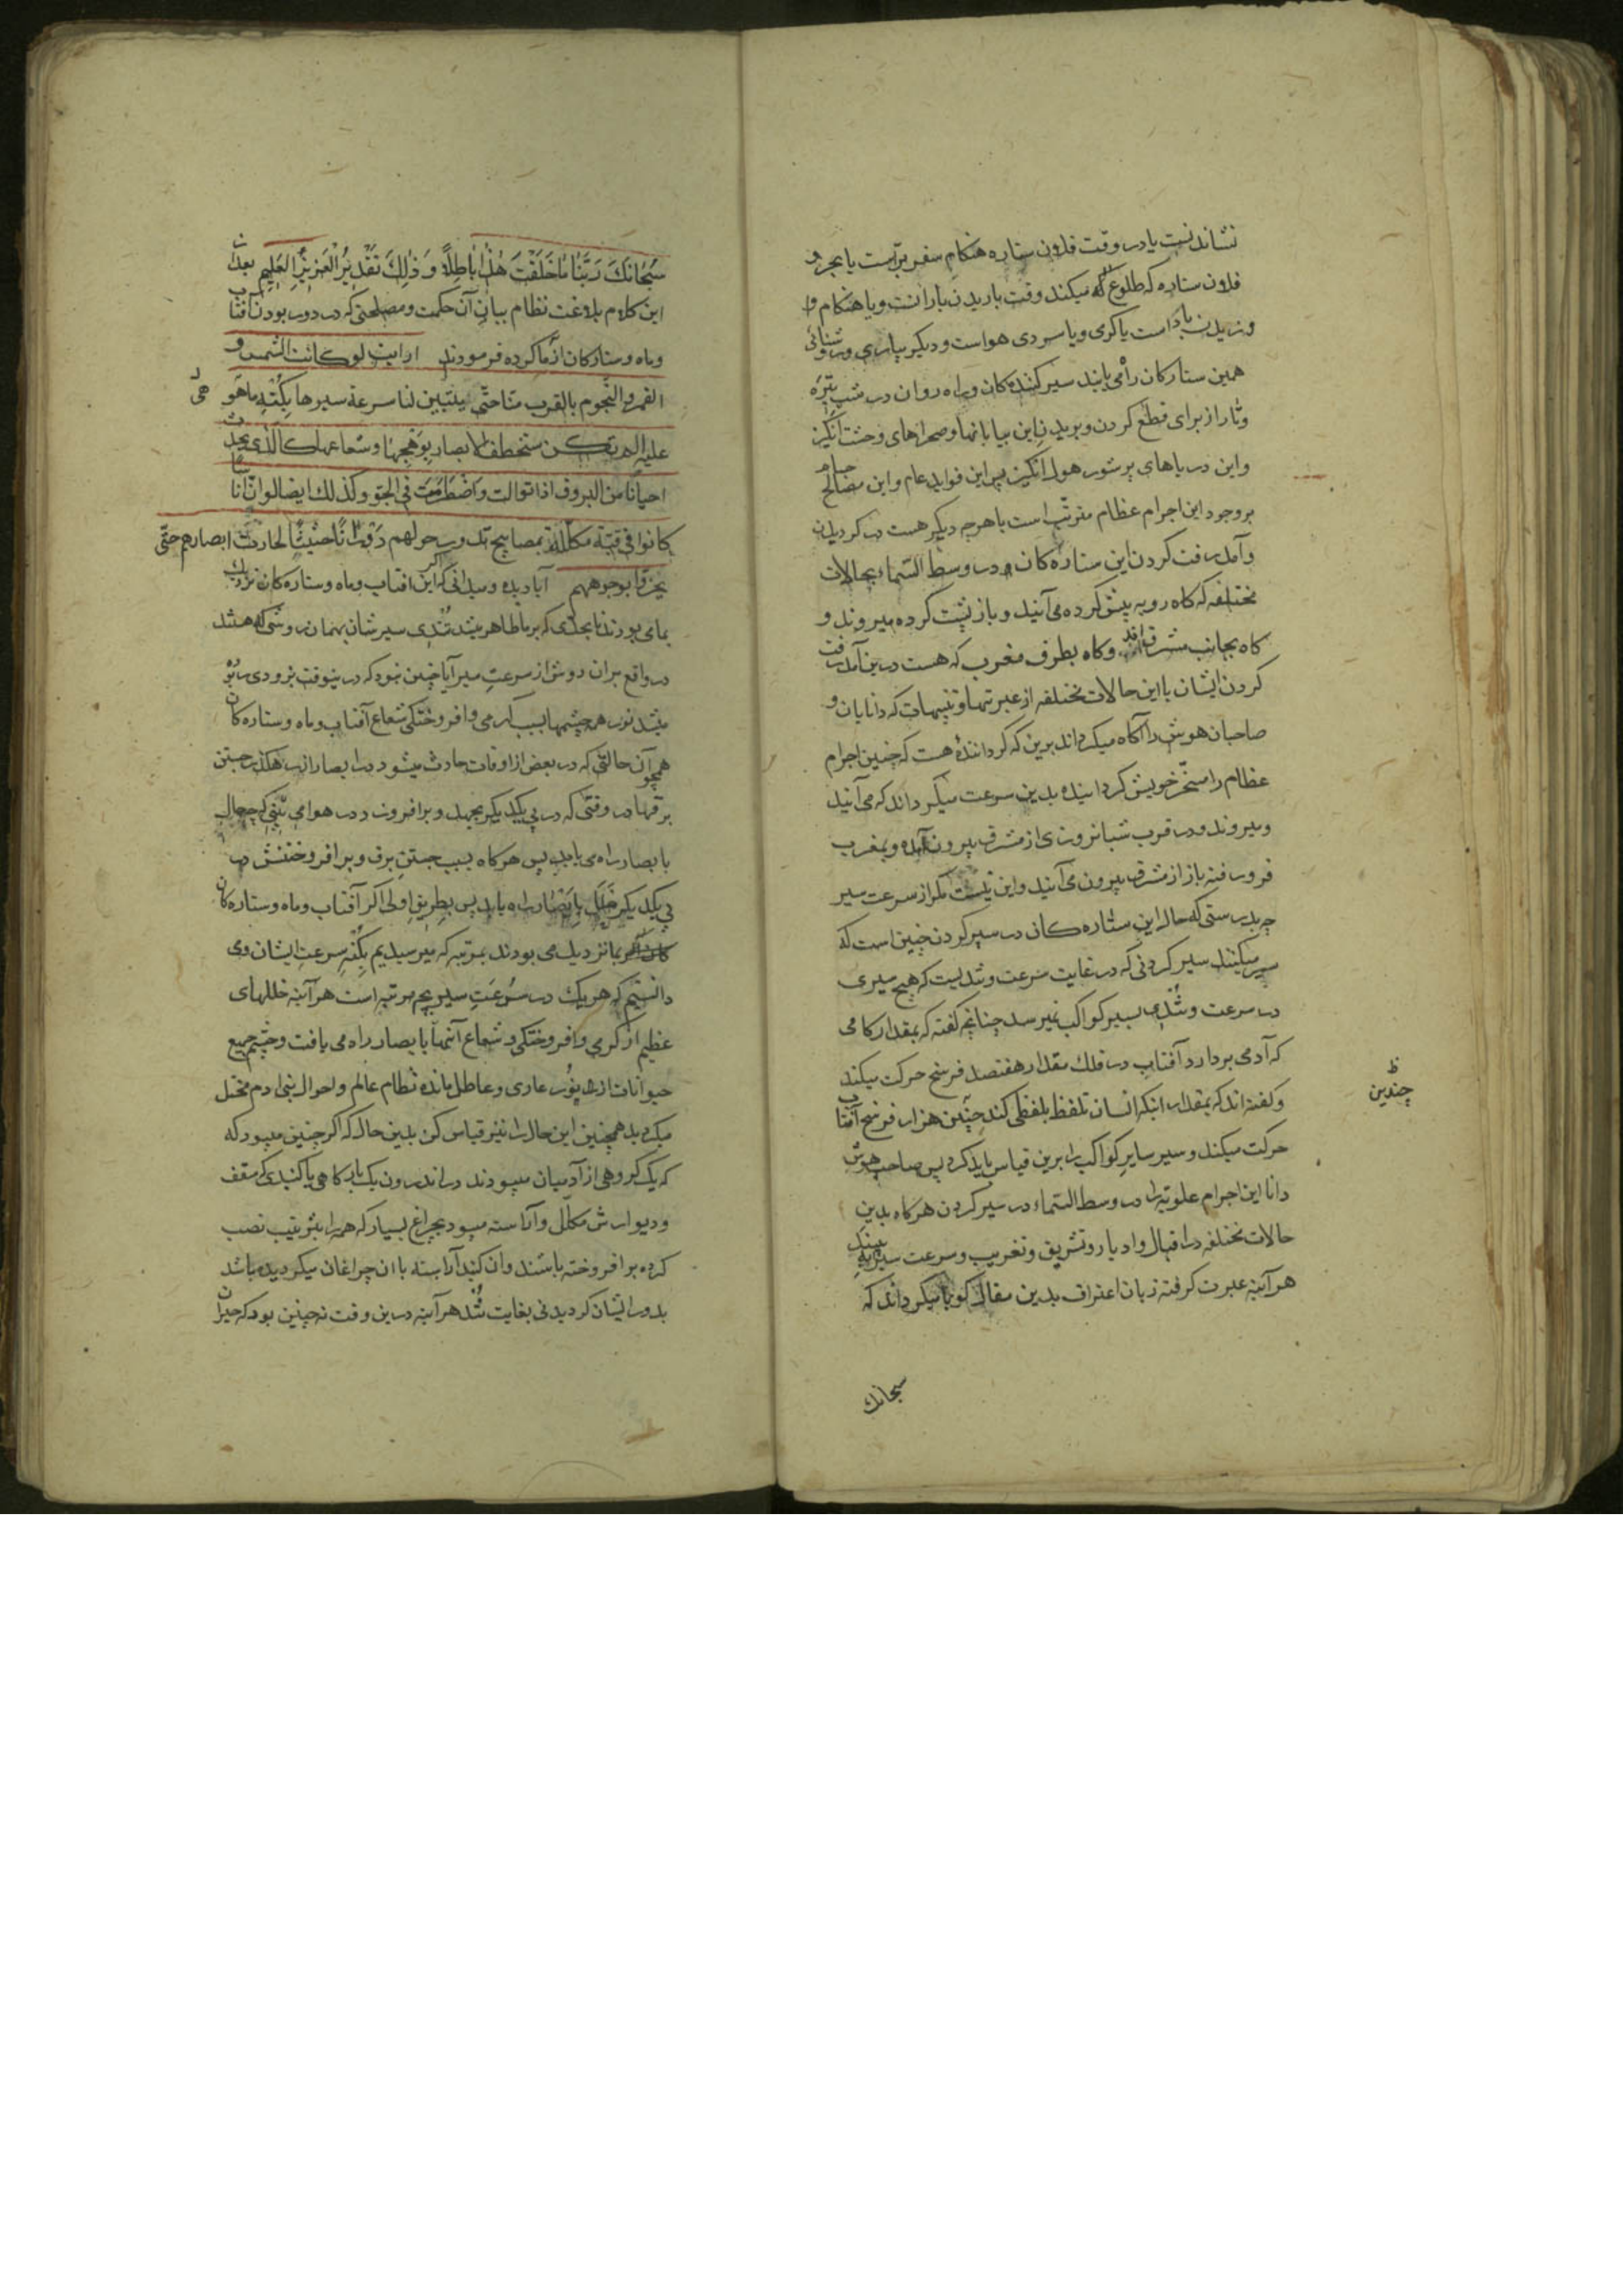 نشاندنست یا در وقت فلان ستاره هنکام سفر برّاست یا بحر و
فلان ستاره که طلوع که میکند وقت باریدن بارانست ویا هنکام و
وزیدن باد است یا کرمی ویا سردی هواست و دیکر بیاری وروشنائی
همین ستارکان راه می یابند سیر کنندکان و راه روان در شب تیره
وتار از برای قطع کردن و بریدن این بیابانها و صحراهای وحشت انکیز
واین دریاهای پرشور هول انکیز پس این فواید عام واین مصالح
بر وجود این اجرام عظام مترتب است با هرچه دیکر هست در کردیدن
وآمد رفت کردن این ستاره کان در وسط السّماء بحالات
مختلفه که کاه رو به پیش کرده می آیند و باز پشت کرده میروند و
کاه بجانب مشرق اند وکاه بطرف مغرب که هست درین آمد رفت
کردن ایشان با این حالات مختلفه از عبرتها و تنبیهات که دانایان و
صاحبان هوش را آکاه میکرداند برین که کرداننده هست که چنین اجرام
عظام را مسخّر خویش کردانیده بدین سرعت میکرداند که می آیند
ومیروند و در قرب شبانروزی از مشرق بیرون آمده و بمغرب
فرو رفته باز از مشرق بیرون می آیند واین نیست مکر از سرعت سیر
چه بدرستی که حال این ستاره کان در سیر کردن چنین است که
سیر میکنند سیر کردنی که در غایت سرعت وشدتست که هیچ سیری
در سرعت وتندی بسیر کواکب نمیرسد چنانچه کفته که بمقدار کامی
که آدمی بردارد آفتاب در فلک مقدار هفتصد فرسخ حرکت میکند
وکفته اند که بمقدار اینکه انسان تلفظ بلفظی کند چندین هزار فرسخ آفتاب
چندین
حرکت میکند و سیر سایر کواکب را برین قیاس باید کرد پس صاحب هوش
دانا این اجرام علویّه را در وسط السّماء در سیر کردن هرکاه بدین
حالات مختلفه در اقبال وادبار وتشریق وتغریب وسرعت سیر بیند
هرآینه عبرت کرفته زبان اعتراف بدین مقال کویا میکرداند که
سبحانك
سُبْحَانَكَ رَبَّنَا مَا خَلَقْتَ هٰذَا بَاطِلًا وَ ذٰلِكَ تَقْدِيرُ الْعَزِيزِ الْعَلِيمِ بعد
این کلام بلاغت نظام بیان آن حکمت ومصلحتی که در دور بودن آفتاب
وماه وستارکان از ما کرده فرمودند ارایت لو کانت الشمس و
القمر والنجوم بالقرب منّا حتّی یتبیّن لنا سرعة سیرها بکُنْهِ ما هو
هی
علیه الم تکن ستخطف الابصار بوهجها وشعاعها کالّذی یحدث
احیانا من البروق اذا توالت واضطرمت فی الجوّ وکذلك ایضا لو انّ اناسا
کانوا فی قبّة مکلّلة بمصابیح تدور حولهم دَوَرَانًا حثیثًا لحارت ابصارهم حتّی
یخرّوا لوجوههم آیا دیده ومیدانی که اکر این افتاب وماه وستاره کان نزدیک
بمای بودند تا بحدّی که بر ما ظاهر میشد تندی سیرشان بهمان روشی که هستند
در واقع بران روش از سرعت سیر آیا چنین نبود که درینوقت بزودی ربوده
میشد نور همه چشمها بسبب کرمی وافروختکی شعاع آفتاب وماه وستاره کان
همچو آن حالتی که در بعض از اوقات حادث میشود در ابصار از رهکذر جستن
برقها در وقتی که در پی یکدیکر بجهد وبرافروزد در هوا می بینی که چه حال
با بصار راه می یابد پس هرکاه بسبب جستن برق وبرافروختنش در
پی یکدیکر خلل بابصار راه یابد پس بطریق اولی اکر آفتاب وماه وستاره کان
بما نزدیك می بودند بمرتبه که میرسیدیم بکُنْهِ سرعت ایشان ومی
دانستیم که هریك در سُرْعَتِ سیر بچه مرتبه است هرآینه خللهای
عظیم از کرمی وافروختکی وشعاع آنها بابصار راه می یافت وچشم جمیع
حیوانات از نور عاری وعاطل مانده نظام عالم واحوال بنی ادم مختل
میکردید همچنین این حال را نیز قیاس کن بدین حال که اکر چنین میبود که
که یک کروهی از آدمیان میبودند در اندرون یک بارکاهی یا کنبدی که سقف
ودیوارش مکلّل وآراسته میبود بچراغ بسیار که همه را بترتیب نصب
کرده برافروخته باشند وان کنبد آراسته با ان چراغان میکردیده باشد
بدور ایشان کردیدنی بغایت تند هرآینه درین وقت نه چنین بود که حیران